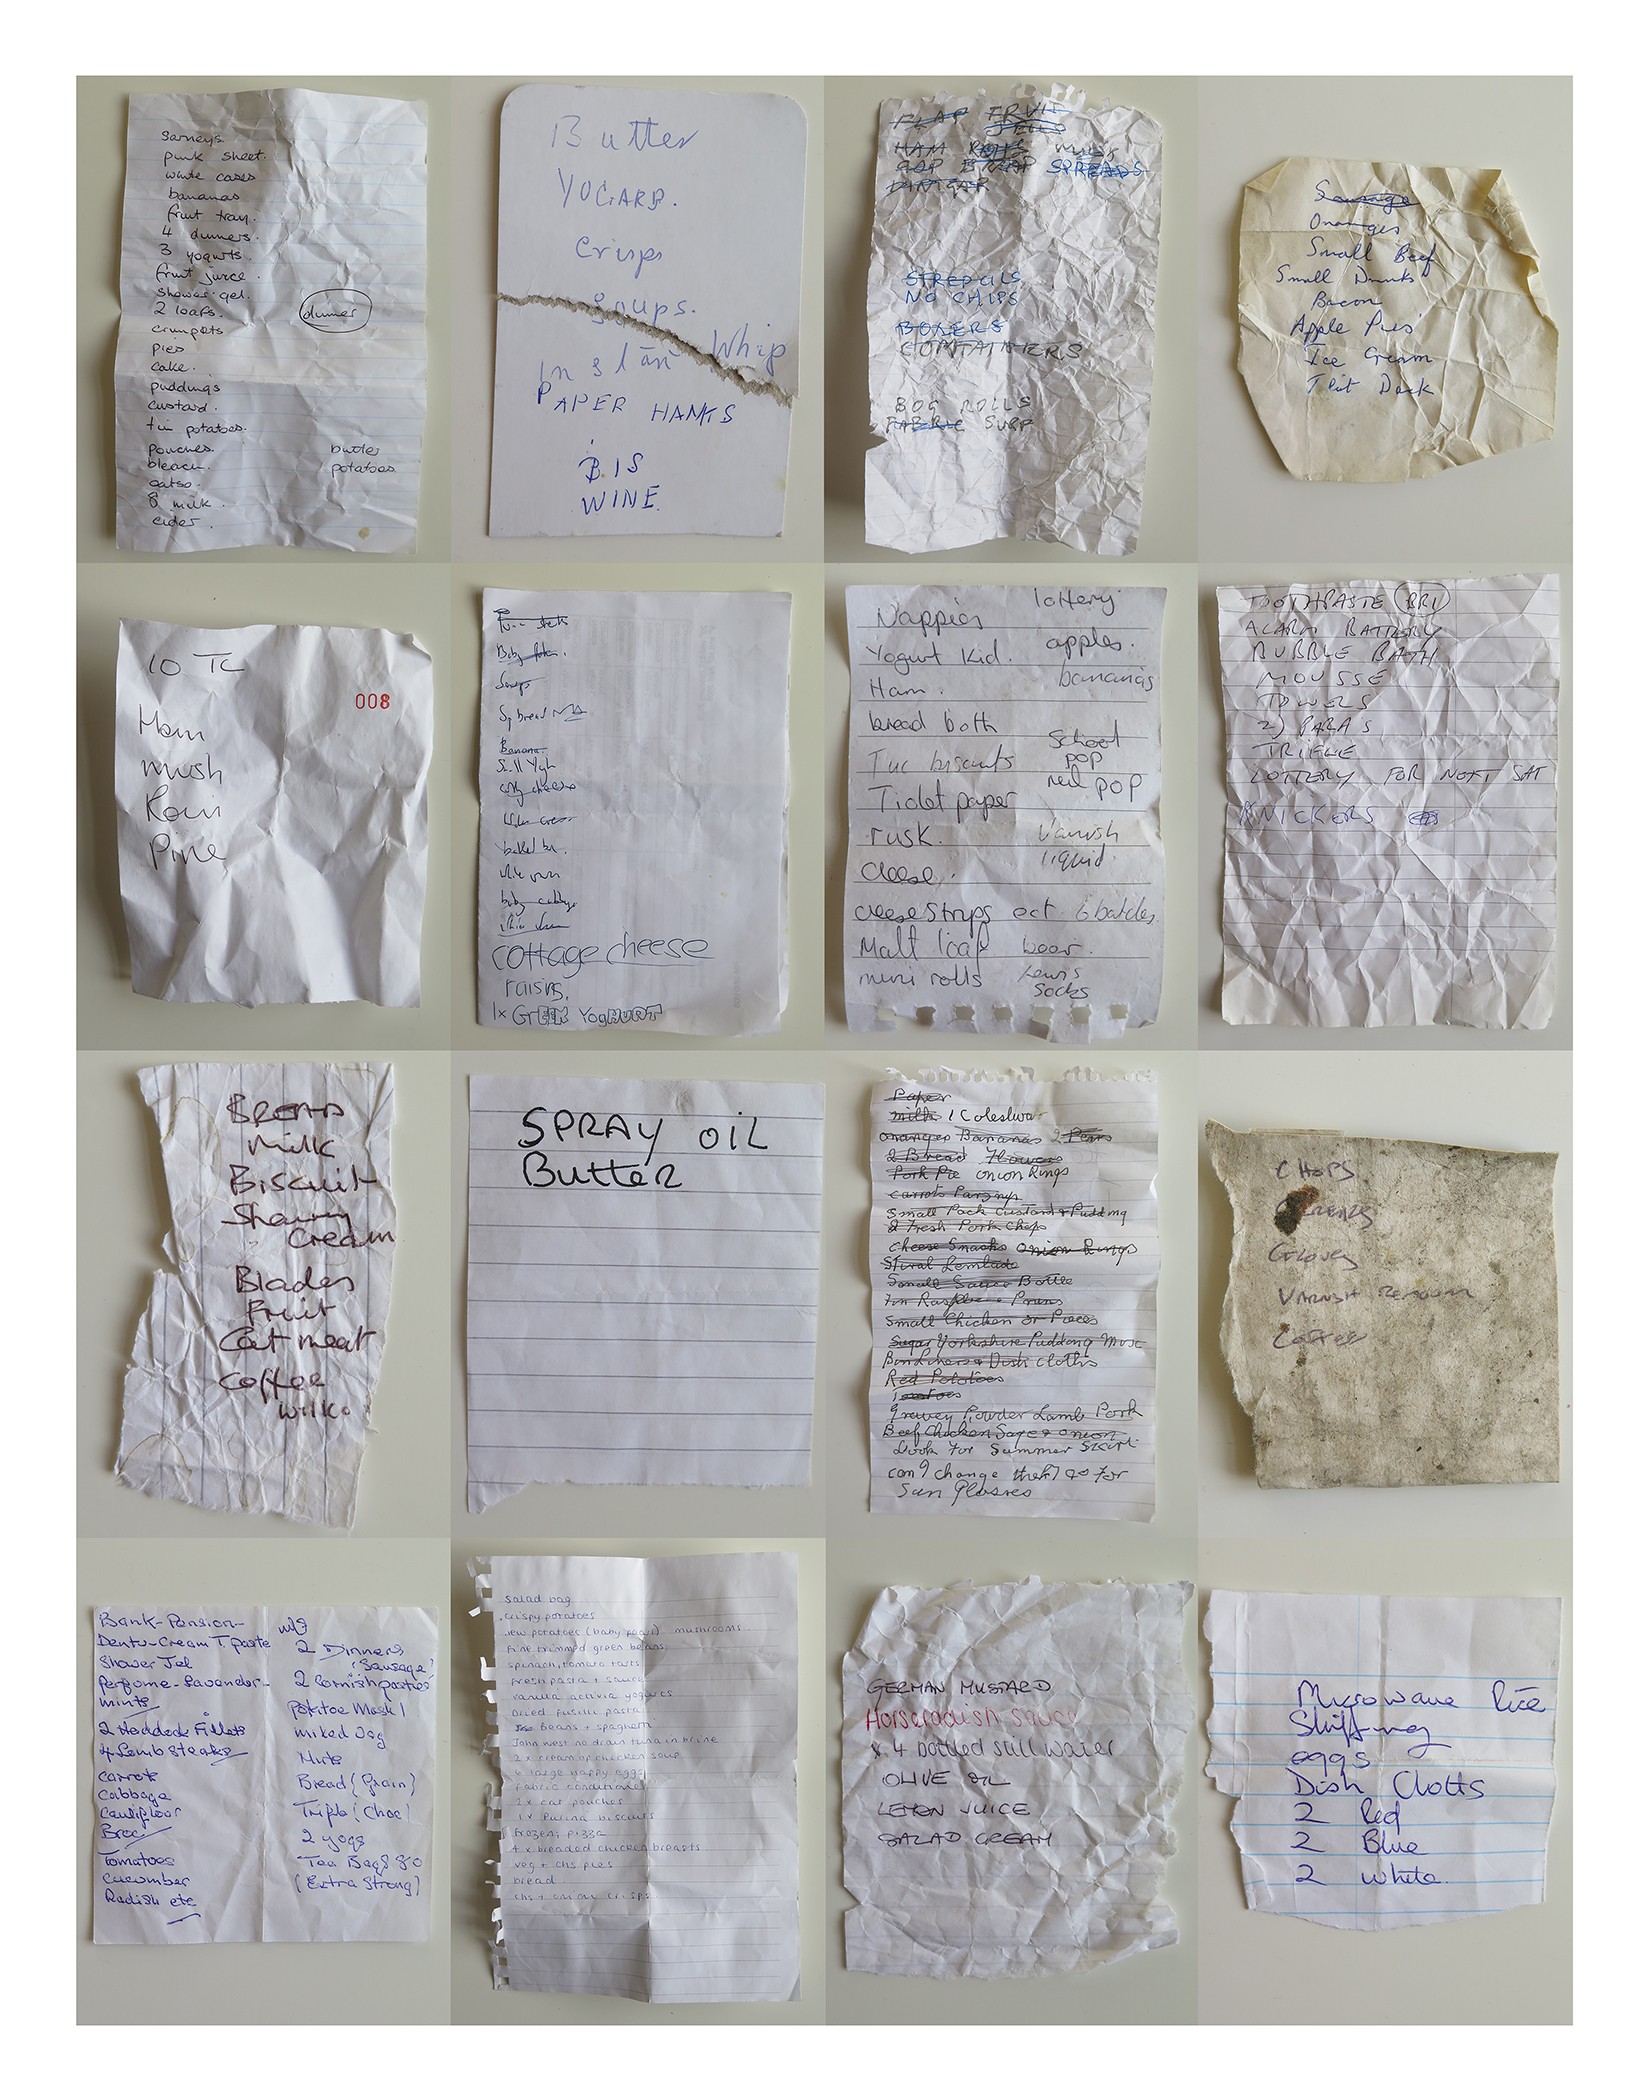 sarneys
pink sheet.
white cases
bananas
fruit tray.
4 dinners.
3 yogurts.
fruit juice.
shower gel.
2 loafs.
dinner
crumpets
pies
cake.
puddings
custard.
tin potatoes.
pouches.
bleach.
oatso.
8 milk.
cider.
butter
potatoes
Butter
YOGARD.
Crisps
Soups.
Whip
PAPER HANKS
BIS
WINE
FLAP FRUIT
HAM
SPREADS
STREPCILS
NO CHIPS
BOXERS
CONTAINERS
BOG ROLLS
FABRIC SURF
Sausage
Oranges
Small Beef
Small Drinks
Bacon
Apple Pies
Ice Cream
10 TC
008
Ham
mush
Rain
Pine
Soups
Banana
cottage cheese
raisins.
1x GrEEK YogHURT
Nappies
Yogurt Kid.
Ham.
bread both
Tuc biscuits
Tiolet paper
rusk.
cleese.
cleese strips ect
Malt loaf
mini rolls
lottery
apples.
bananas
School
pop
neil pop
Vanish
liquid.
6 batches.
beer.
Lewis
Socks
TOOTHPASTE BRI
ALARM BATTERY
BUBBLE BATH
MOUSSE
TOWELS
2) PARA'S
TRIFLE
LOTTERY FOR NEXT SAT
KNICKERS
BREAD
Milk
Biscuit
Shaving
Cream
Blades
Fruit
Cat meat
Coffee
Wilko
SPRAY OIL
Butter
Paper
milk 1 Coleslaw
oranges Bananas 2 Pears
2 Bread Flowers
Pork Pie onion Rings
carrots Parsnip
Small Pack Custard & Pudding
2 Fresh Pork Chops
Cheese Snacks onion Rings
Small Sauce Bottle
Small Chicken or Pieces
Sugar Yorkshire Pudding
Bin Liners & Dish cloths
Red Pototoes
Gravey Powder Lamb Pork
Beef Chicken Sage & onion
Look For Summer Skirt
can I change them go for
Sun Glasses
CHOPS
Gloves
VARNISH REMOVER
COFFEE
Bank-Pension-
Dentu-Cream T. paste
Shower Jel
Perfume-Lavender-
mints
2 Haddock Fillets
4 Lamb Steaks
carrots
cabbage
Cauliflour
Broc
Tomatoes
cucumber
Radish etc
2 Dinners
'Sausage'
2 Cornish pasties
Potatoe Mash 1
mixed Veg
Nuts
Bread (Grain)
Trifle (Choc)
2 yogs
Tea Bags 80
(Extra Strong)
salad bag
crispy potatoes
new potatoes (baby pearl) mushrooms
fine trimmed green beans
spinach, tomato tarts
fresh pasta + sauce
vanilla activia yogurts
Dried fusilli pasta
beans + spaghetti
John west no drain tuna in brine
2 x cream of chicken soup
6 large happy eggs
fabric conditioner
2 x cat pouches
1 x Purina biscuits
frozen; pizza
4 x breaded chicken breasts
veg + chs pies
bread
chs + onion crisps
GERMAN MUSTARD
Horseradish Sauce
x 4 bottled still water
OLIVE OIL
LEMON JUICE
SALAD CREAM
Microwave Rice
Stuffing
eggs
Dish Cloths
2 Red
2 Blue
2 White.